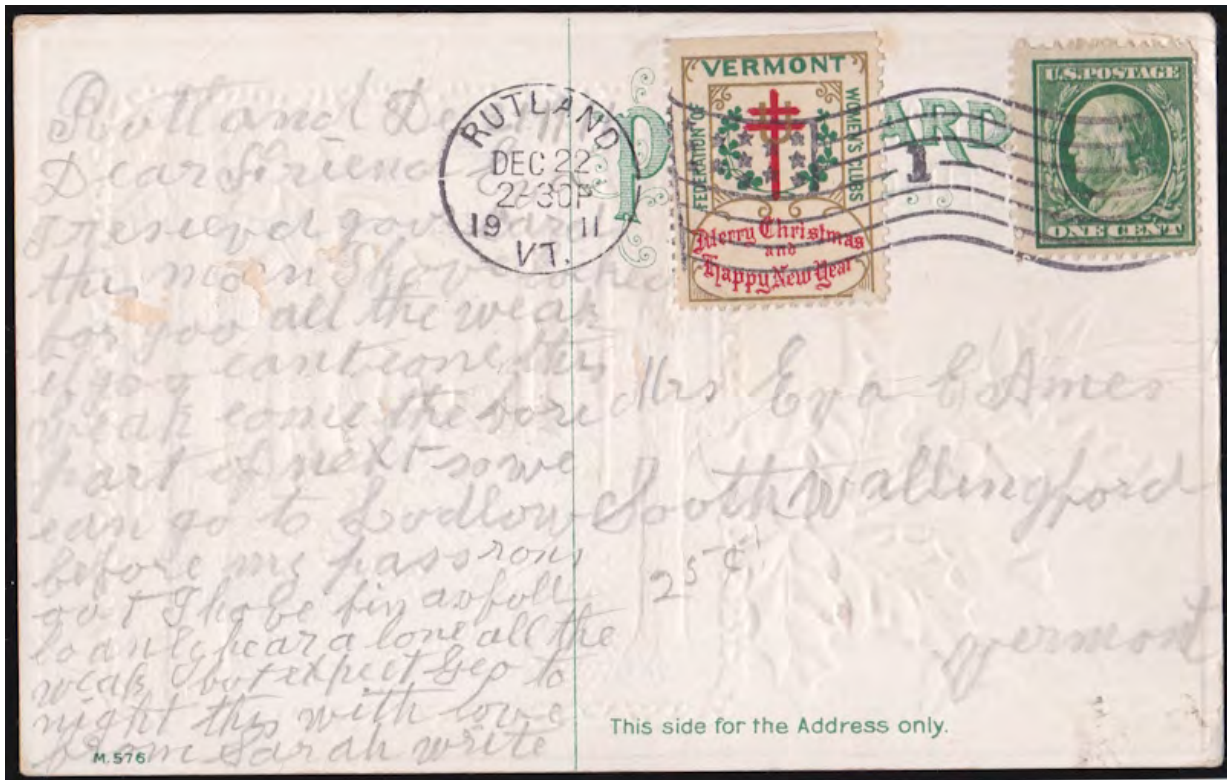 Dear friend
received your card
this morn I have looked
for you all the weak
if you cant come this
weak come the fore
part of next so we
can go to Ludlow
before my pass rons
out I have bin awfull
here a lone all the
weak but expect Geo to
night this with love
from Sarah write
M.576
RUTLAND
DEC 22
2-30P
19 11
VT.
P ARD
VERMONT
FEDERATION OF
WOMEN'S CLUBS
Merry Christmas
and
Happy New Year
1
U.S. POSTAGE
ONE CENT
Mrs Eva C Ames
South Wallingford
25¢
Vermont
This side for the Address only.